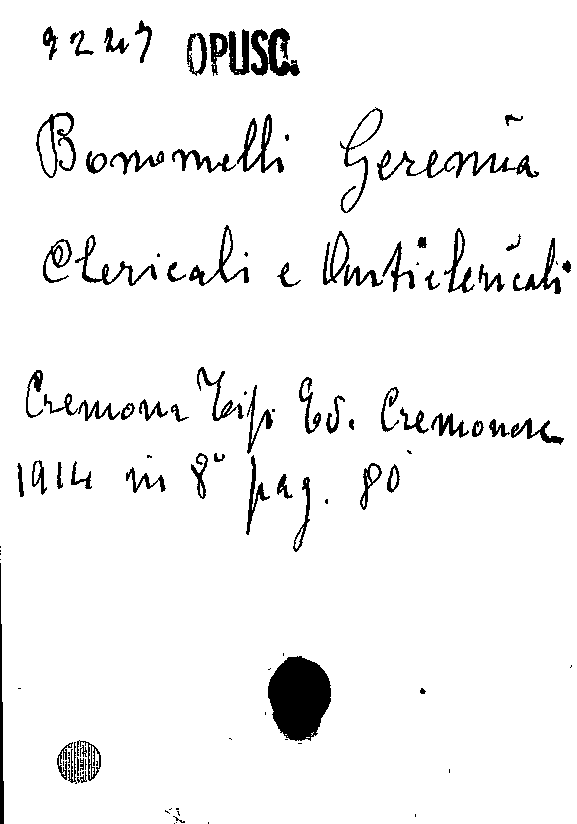 9247 OPUSC.
Bonomelli Geremia
Clericali e Anticlericali
Cremona Tip. Ed. Cremonese
1914 in 8° pag. 80